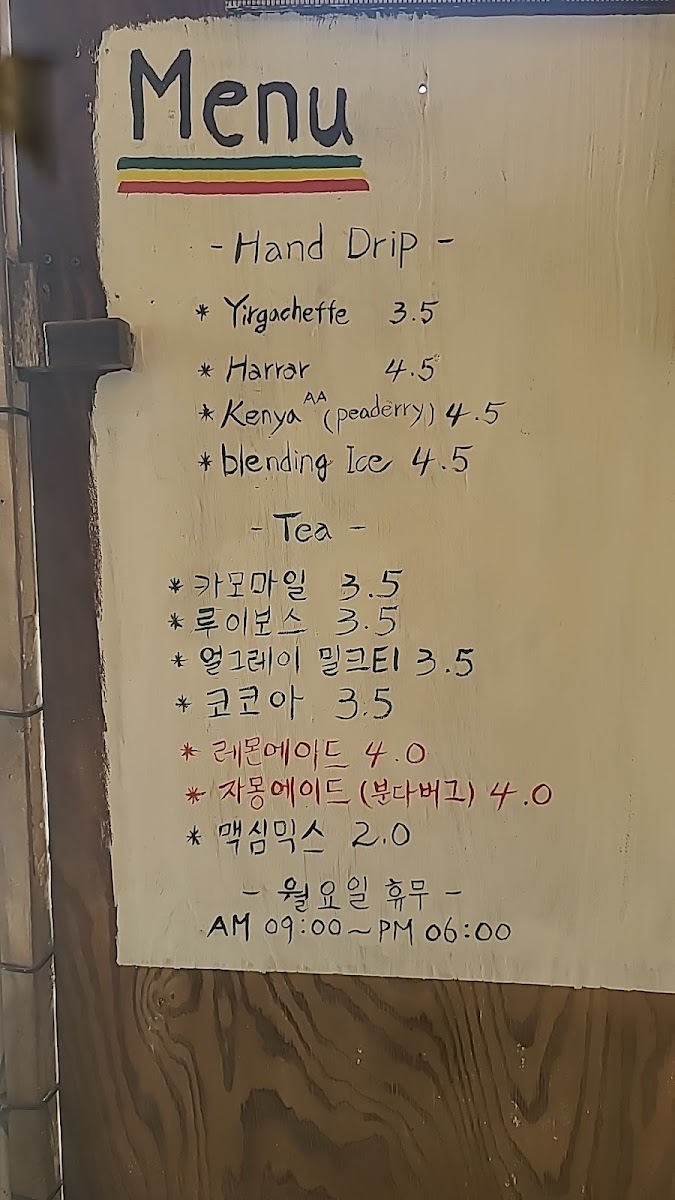 Menu
- Hand Drip -
* Yirgacheffe 3.5
* Harrar 4.5
* Kenya AA (peaderry) 4.5
* blending Ice 4.5
- Tea -
* 카모마일 3.5
* 루이보스 3.5
* 얼그레이 밀크티 3.5
* 코코아 3.5
* 레몬에이드 4.0
* 자몽에이드 (분다버그) 4.0
* 맥심믹스 2.0
- 월요일 휴무 -
AM 09:00~PM 06:00